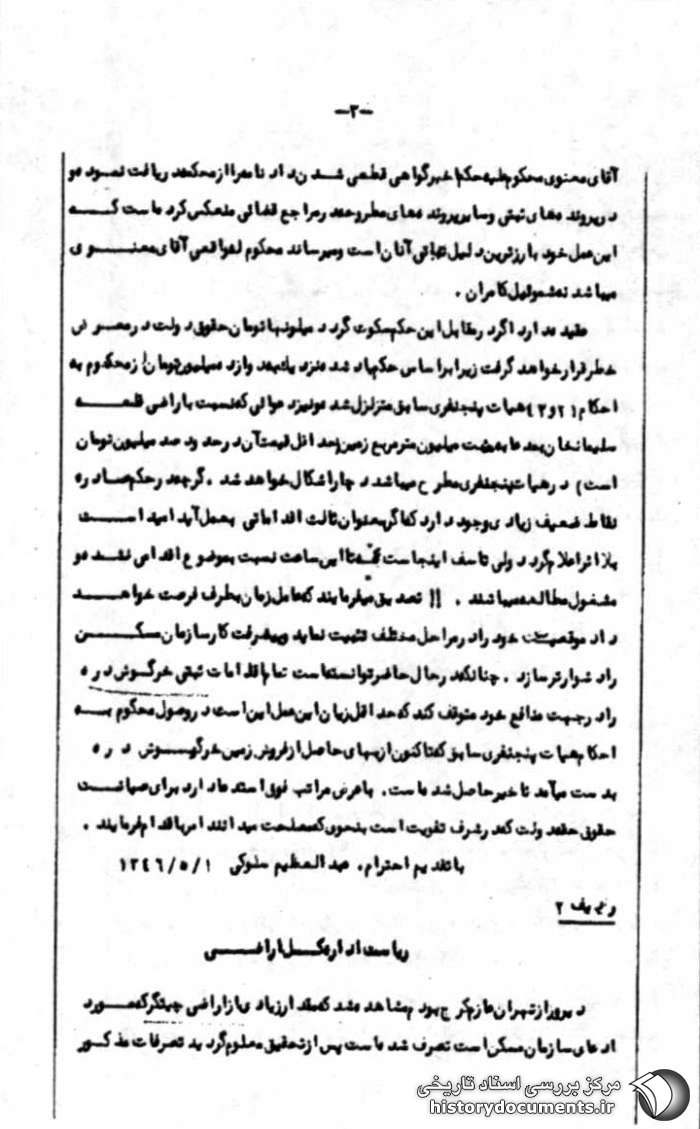 -۳-
آقای معنوی محکوم علیه حکم اخیر گواهی قطعی شدن دادنامه را از محکمه دریافت نموده و
در پرونده های ثبتی و سایر پرونده های مطروحه در مراجع قضائی منعکس کرده است که
این عمل خود بارزترین دلیل تبانی آنان است و میرساند محکوم له واقعی آقای معنوی
میباشد نه شموئیل کامران .
عقیده دارد اگر در مقابل این حکم سکوت گردد میلیونها تومان حقوق دولت در معرض
خطر قرار خواهد گرفت زیرا بر اساس حکم یاد شده نزدیک به دوازده میلیون تومان از محکوم به
احکام (۲ و ۳) هیات پنجنفری سابق متزلزل شده و نیز دعوائی که نسبت باراضی قلعه
سلیمانخان بمدعابه هشت میلیون مترمربع زمین (حداقل قیمت آن در حدود صد میلیون تومان
است) در هیات پنجنفری مطرح میباشد دچار اشکال خواهد شد . گرچه در حکم صادره
نقاط ضعیف زیادی وجود دارد که اگر بعنوان ثالث اقداماتی بعمل آید امید است
بلااثر اعلام گردد ولی تاسف اینجاست که تا این ساعت نسبت بموضوع اقدامی نشده و
مشغول مطالعه میباشند . !! تصدیق میفرمایند که عامل زمان بطرف فرصت خواهد
داد موقعیت خود را در مراحل مختلف تثبیت نماید و پیشرفت کار سازمان مسکن
را دشوارتر سازد . چنانکه در حال حاضر توانسته است تمام اقدامات ثبتی خرگوش دره
را در جهت منافع خود متوقف کند که حداقل زیان این عمل این است در وصول محکوم به
احکام هیات پنجنفری سابق که تاکنون از بهای حاصل از فروش زمین خرگوش دره
بدست میآمد تاخیر حاصل شده است . با عرض مراتب فوق استدعا دارد برای صیانت
حقوق حقه دولت که در شرف تفویت است بنحوی که مصلحت میدانند امر باقدام فرمایند .
با تقدیم احترام . عبدالعظیم سلوکی ۱ / ۵ / ۱۳۴۶
ردیف ۲
ریاست اداره کل اراضی
دیروز از تهران عازم کرج بودم مشاهده شد که مقدار زیادی از اراضی چیتگر که مورد
ادعای سازمان مسکن است تصرف شده است پس از تحقیق معلوم گردید تصرفات مذکور
مرکز بررسی اسناد تاریخی
historydocuments.ir